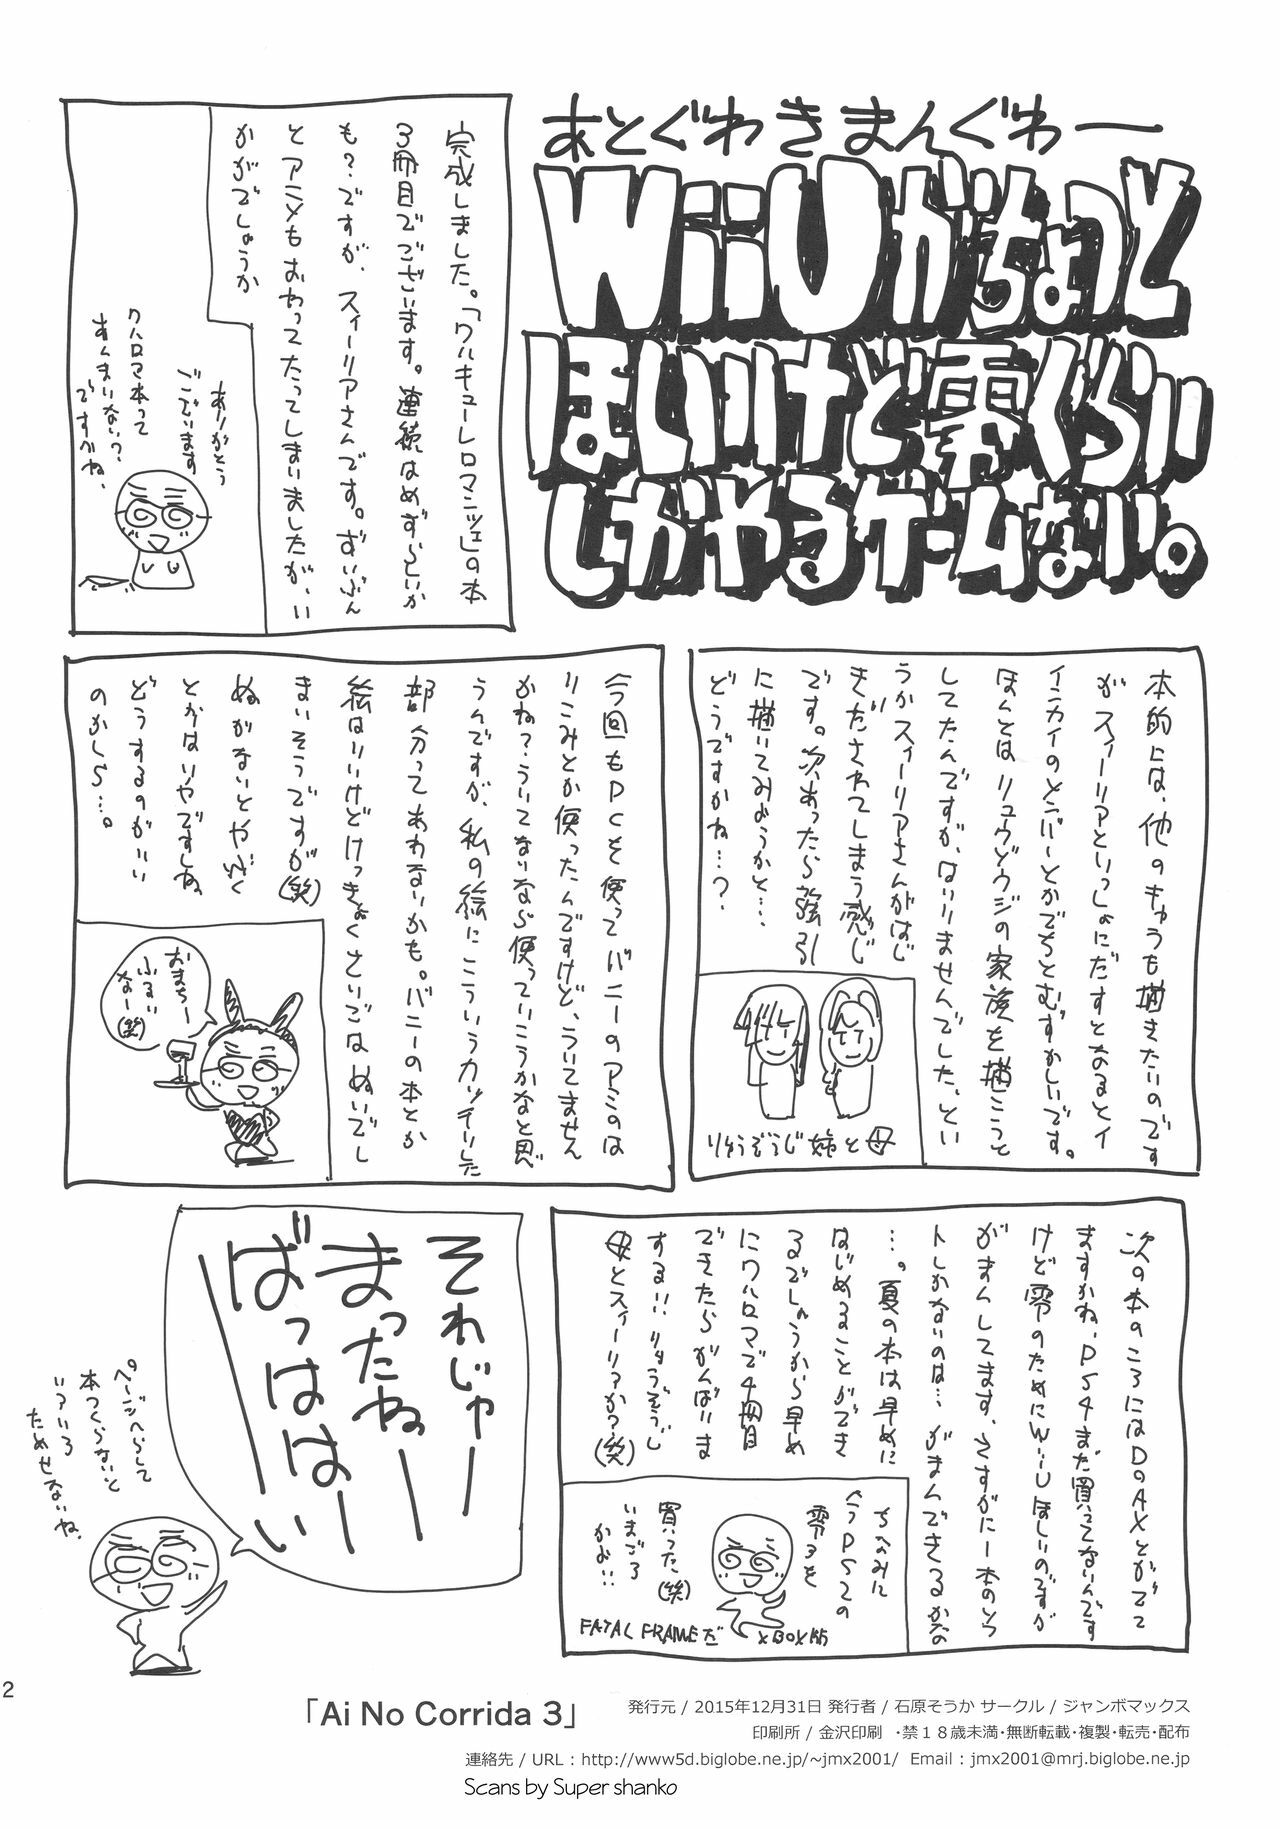 あとぐわきまんぐわー
WiiUがちょっと
ほしいけど零ぐらい
しかやるゲームない。
完成しました。「ワルキューレロマンツェ」の本
3冊目でございます。連続はめずらしいか
も?ですが、スィーリアさんです。ずいぶん
とアニメもおわってたってしまいましたが、い
かがでしょうか
ありがとう
ございます
ワルロマ本って
あんまりない?
ですかね、
本的には、他のきゅうも描きたいのです
がスィーリアといっしょにだすとなるとイ
インカイのメンバーとかでちとむずかしいです。
ほんとはリュウゾウジの家族を描こうと
してたんですが、はいりませんでした、とい
うかスィーリアさんがはじ
きだされてしまう感じ
です。次あったら強引
に描いてみようかと…
どうですかね…?
りゅうぞうじ姉と母
今回もPCを使ってバニーのアミのは
りこみとか使ったんですけど、ういてません
かね?ういてないなら使っていこうかなと思
うんですが、私の絵にこういうカッチリした
部分ってあわないかも。バニーの本とか
絵はいいけどけっきょくさいごはぬいでし
まいそうですが(笑)
ぬがないとやぶく
とかはいやですしね
どうするのがいい
のかしら…。
おまちー
ふるい
なー(笑)
次の本のころにはDOAXとかでて
ますかね、PS4まだ買ってないんです
けど零のためにWiiUほしいのですが
がまんしてます、さすがに一本のソフ
トしかないのは…がまんできるかな
…。夏の本は早めに
はじめることができ
るでしょうから早め
にワルロマで4冊目
できたらがんばりま
する!!りゅうぞうじ
母とスィーリアか?(笑)
ちなみに
今PS2の
零3を
買った(笑)
いまごろ
かよ!!
FATAL FRAMEだ
XBOX版
それじゃー
まったねー
ばっはは
ーい
ページへらして
本つくらないと
いろいろ
ためせないね、
2
「Ai No Corrida 3」
発行元 / 2015年12月31日 発行者 / 石原そうか サークル / ジャンボマックス
印刷所 / 金沢印刷 ・禁18歳未満・無断転載・複製・転売・配布
連絡先 / URL : http://www5d.biglobe.ne.jp/~jmx2001/ Email : jmx2001@mrj.biglobe.ne.jp
Scans by Super shanko